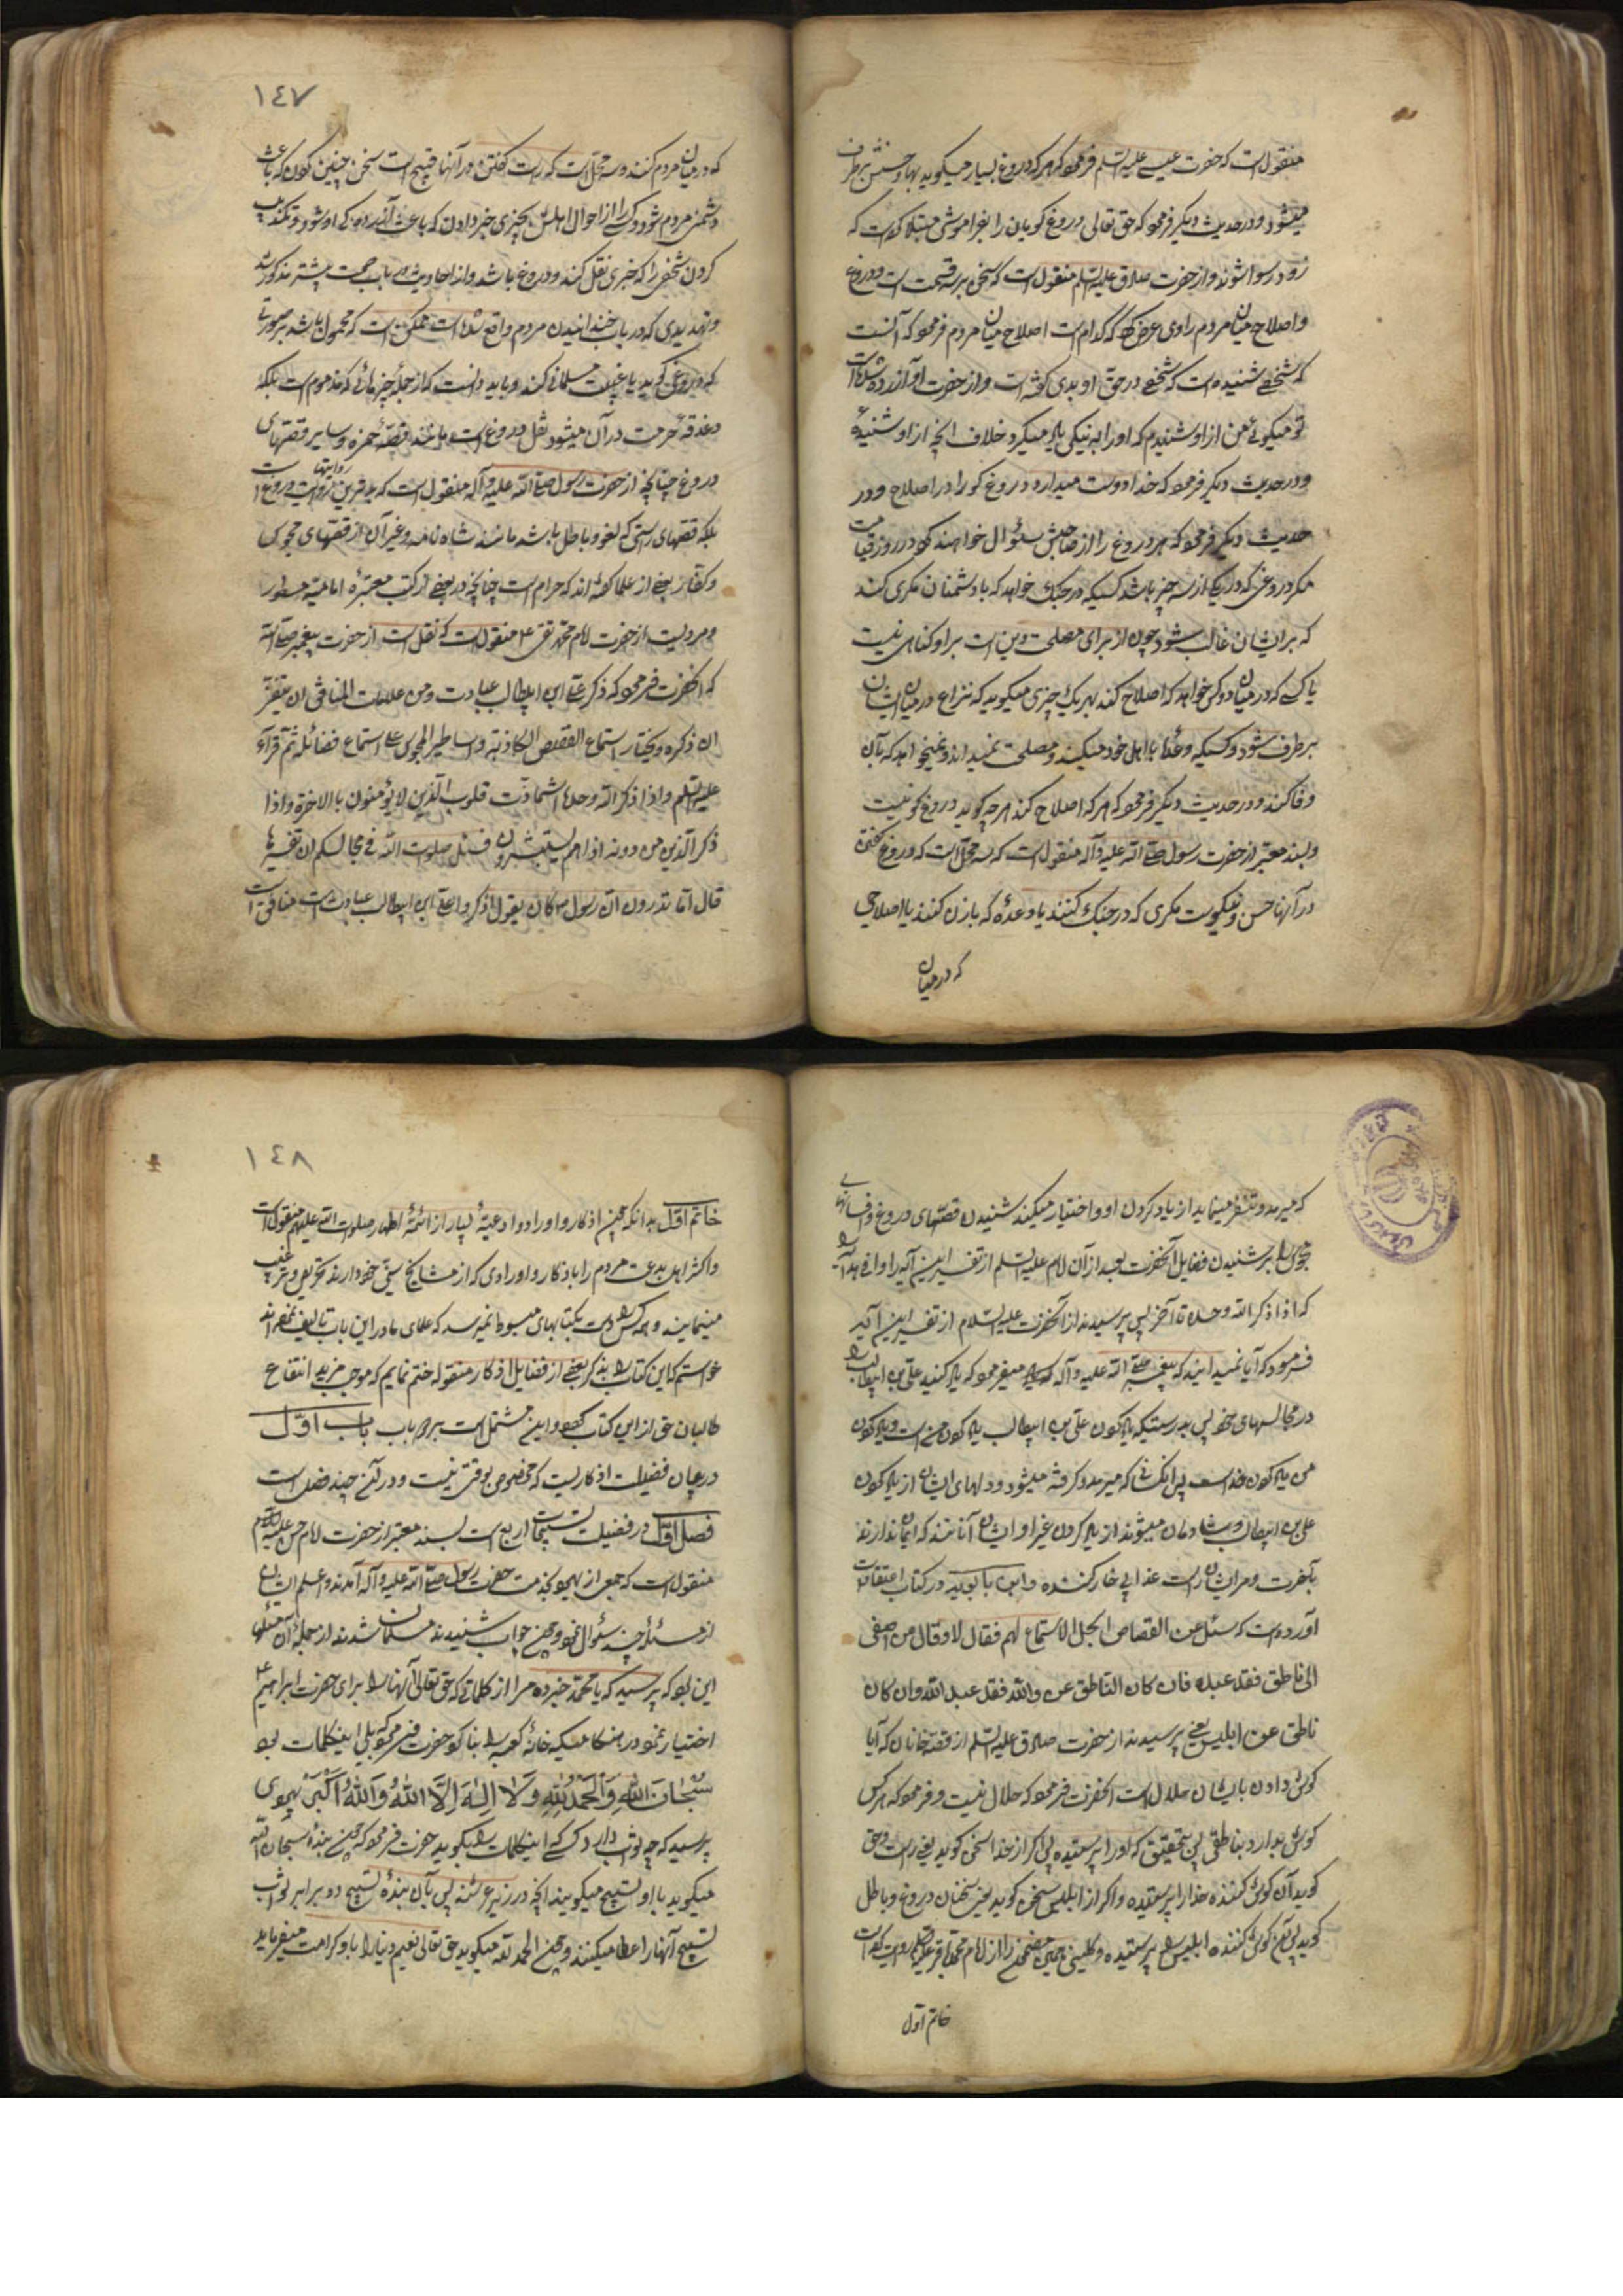 منقولست که حضرت عیسی علیه السلم فرمود که هر که دروغ بسیار میگوید بها و حسنش برطرف
میشود و در حدیث دیگر فرمود که حق تعالی دروغ کویان را بفراموشی مبتلا کرده است که
زود رسوا شوند و از حضرت صادق علیه السلم منقول است که سخن بر سه قسمت است و دروغ
و اصلاح میان مردم راوی عرض کرد که کدام است اصلاح میان مردم فرمود که آنست
که شخصی شنیده است که شخصی در حق او بدی کفته است و از حضرت او آزرده شده است
تو میکوئی من از او شنیدم که او را به نیکی یاد میکرد خلاف انچه از او شنیدهٔ
و در حدیث دیگر فرمود که خدا دوست میدارد دروغ کو را در اصلاح و در
حدیث دیگر فرمود که هر دروغ را از صاحبش سئوال خواهند کرد در روز قیامت
مکر دروغی که در یکی از سه چیز باشد کسیکه در جنک خواهد که با دشمنان مکری کند
که بر ایشان غالب شود چون از برای مصلحت دین است بر او کناهی نیست
یا کسی که در میان دو کس خواهد که اصلاح کند بهر یک چیزی میکوید که نزاع در میان ایشان
برطرف شود و کسیکه وعدٔه با اهل خود میکند و مصلحت نمیداند و نمیخواهد که بآن
وفا کند و در حدیث دیگر فرمود که هر که اصلاح کند هر چه کوید دروغ کو نیست
و بسند معتبر از حضرت رسول صلی الله علیه و آله منقول است که سه محل است که دروغ کفتن
در آنها حسن و نیکوست مکری که در جنک کنند یا وعدهٔ که با زن کنند یا اصلاحی
که در میان
١٤٧
که در میان مردم کنند و سه محل است که راست کفتن در آنها قبیح است سخن چینی کردن که باعث
دشمنی مردم شود و کسی را از احوال اهلش بچیزی خبر دادن که باعث آزردکی او شود و تکذیب
کردن شخصی را که خبری نقل کند و دروغ باشد و از احادیث در باب حجت پیشتر مذکور شد
و تهدیدی که در باب خندانیدن مردم واقع شده است ممکن است که محمول باشد بر صورتی
که دروغ کوید یا غیبت مسلمانی کند و باید دانست که از جملهٔ چیزهائی که مذموم است بلکه
دغدغهٔ حرمت در آن میشود نقل دروغ است مانند قصهٔ حمزه و سایر قصهای
دروغ چنانچه از حضرت رسول صلی الله علیه و آله منقول است که بدترین روایتها روایت دروغ است
بلکه قصهای راستی که لغو و باطل باشد مانند شاه نامه و غیر آن از قصهای مجوس
و کفار بعضی از علما کفته اند که حرام است چنانچه در بعضی از کتب معتبرهٔ امامیه مسطور
و مرویست از حضرت امام محمد تقی ع منقولست که نقل است از حضرت پیغمبر صلی الله
که انحضرت فرمود که ذکر علی ابن ابیطالب عبادت و من علامات المنافق ان یتنفر
ان ذکره و یختار استماع القصص الکاذبة و اساطیر المجوس علی استماع فضائله ثم قرأ
علیه السلم و اذا ذکر الله وحده اشمأذت قلوب الذین لا یؤمنون بالاخرة و اذا
ذکر الذین من دونه اذا هم یستبشرون فسئل صلوات الله فی مجالسکم ان تفسیرها
قال اما تدرون ان رسول ص کان یقول اذکروا علی ابن ابیطالب
که میرمد و تنفر مینماید از یاد کردن او و اختیار میکند شنیدن قصهای دروغ و افسانهای
مجوس را بر شنیدن فضایل آنحضرت بعد از آن امام علیه السلم از تفسیر این آیه را
که اذا ذکر الله وحده تا آخر پس پرسیدند از آنحضرت علیه السلام از تفسیر این آیه
فرمود که آیا نمیدانید که پیغمبر صلی الله علیه و آله میفرمود که یاد کنید علی بن ابیطالب را
در مجالسهای خود پس بدرستیکه یاد کردن علی بن ابیطالب یاد کردن من است و یاد کردن
من یاد کردن خداست پس آنکسانی که میرمد و کرفته میشود و دلهای ایشان از یاد کردن
علی بن ابیطالب و شادمان میشوند از یاد کردن غیر او ایشان آنانند که ایمان ندارند
بآخرت و مر ایشان راست عذابی خوارکننده و ابن بابویه در کتاب اعتقادات
آورده است که سئل عن القصاص ایحل الاستماع لهم فقال لا و قال من اصغی
الی ناطق فقد عبده فان کان الناطق عن الله فقد عبد الله و ان کان
ناطق عن ابلیس یعنی پرسیدند از حضرت صادق علیه السلم از قصه خانان که آیا
کوش دادن بایشان حلال است انحضرت فرمود که حلال نیست و فرمود که هر کس
کوش بدارد بناطقی پس بتحقیق که او را پرستیده پس اکر از خدا سخن کوید یعنی راست و حق
کوید آن کوش کننده خدا را پرستیده و اکر از ابلیس سخن کوید یعنی سخنان دروغ و باطل
کوید پس آن کوش کننده ابلیس را پرستیده و کلینی همین مضمون را از امام محمد باقر علیه السلم روایت کرده است
خاتم اول
١٤٨
خاتم اول بدانکه چون اذکار و اوراد و ادعیهٔ بسیار از ائمهٔ اطهار صلوات الله علیهم منقول است
و اکثر اهل بدعت مردم را باذکار و اورادی که از مشایخ سنی خود دارند تحریص و ترغیب
مینمایند و همه کس را دست بکتابهای مبسوط نمیرسد که علمای ما در این باب تالیف نموده اند
خواستم که این کتاب را بذکر بعضی از فضایل اذکار منقوله ختم نمایم که موجب مزید انتفاع
طالبان حق از این کتاب کردد و این مشتمل است بر دو باب باب اول
در بیان فضیلت اذکاریست که مخصوص بوقتی نیست و در آن چند فصل است
فصل اول در فضیلت تسبیحات اربع است بسند معتبر از حضرت امام حسن علیه السلام
منقول است که جمعی از یهود بخدمت حضرت رسول صلی الله علیه و آله آمدند و اعلم ایشان
از مسئلهٔ چند سئوال نمود و چون جواب شنیدند مسلمان شدند از جملهٔ آن مسئلها
این بود که پرسید که یا محمد خبر ده مرا از کلماتی که حق تعالی آنها را برای حضرت ابراهیم ع
اختیار نمود در هنکامیکه خانهٔ کعبه را بنا کرد حضرت فرمود که بلی اینکلمات بود
سُبْحَانَ اللّهِ وَالْحَمْدُ لِلّهِ وَلَا اِلهَ اِلَّا اللّهُ وَاللّهُ اَکْبَرُ یهودی
پرسید که چه ثواب دارد کسی که اینکلمات را بکوید حضرت فرمود که چون بندهٔ سبحان الله
میکوید با او تسبیح میکویند انچه در زیر عرشند پس بآن بنده تسبیح دو برابر ثواب
تسبیح آنها را عطا میکنند و چون الحمد لله میکوید حق تعالی نعیم دنیا را باو کرامت میفرماید